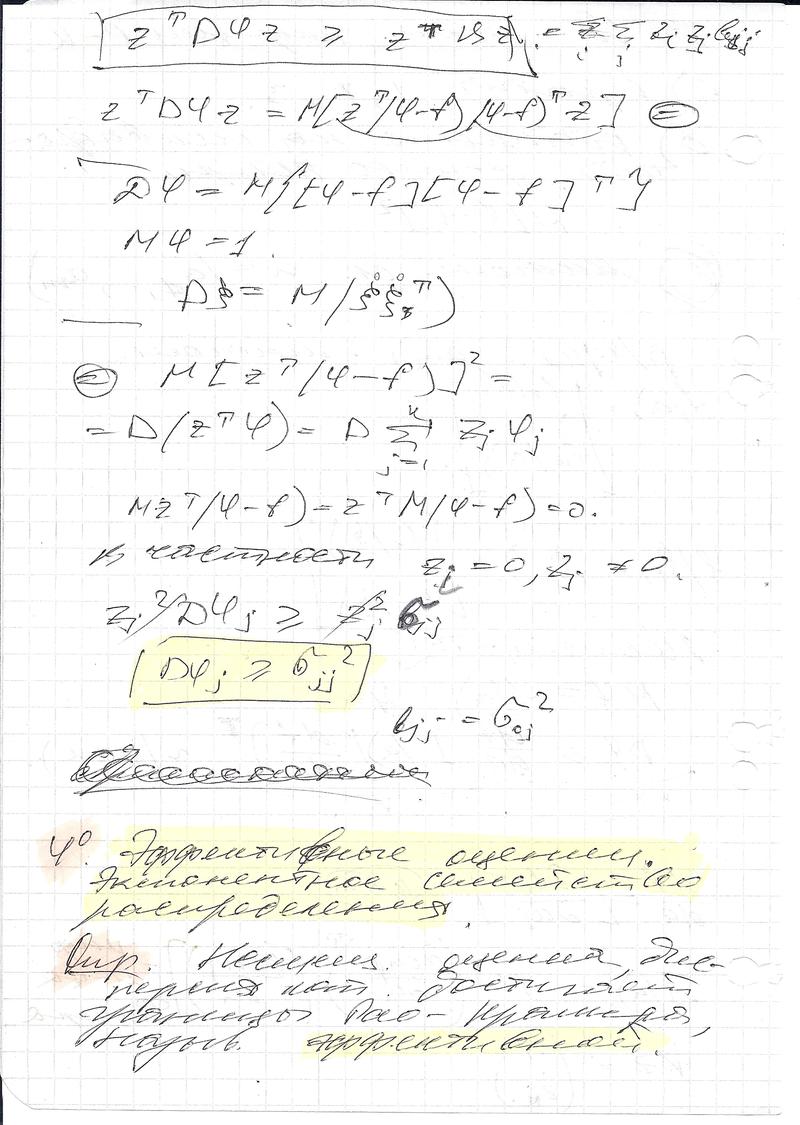 z^T Dφ z ≥ z^T B z = Σ_i Σ_j z_i z_j b_ij
z^T Dφ z = M[z^T(φ-f)(φ-f)^T z] ⊜
Dφ = M{[φ-f][φ-f]^T}
Mφ = 1.
Dξ = M(ξ̊ ξ̊^T)
⊜ M[z^T(φ-f)]^2 =
= D(z^T φ) = D Σ_{j=1}^k z_j φ_j
M z^T(φ-f) = z^T M(φ-f) = 0.
В частности z_i = 0, z_j ≠ 0.
z_j^2 Dφ_j ≥ z_j^2 b_jj
Dφ_j ≥ σ_jj^2
b_jj = σ_oj^2
4°. Эффективные оценки.
Экспонентное семейство
распределения.
Опр. Несмещ. оценка, дис-
персия кот. достигает
границы Рао-Крамера,
назыв. эффективной.